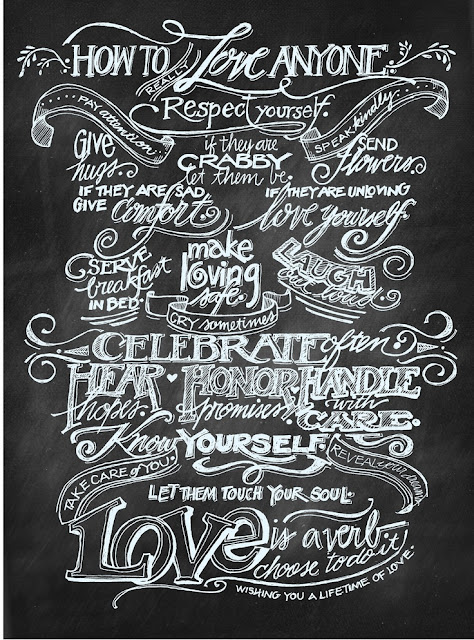 HOW TO REALLY Love ANYONE
Respect yourself.
PAY attention...
SPEAK kindly.
GIVE hugs.
if they are CRABBY let them be.
SEND flowers.
IF THEY ARE SAD GIVE comfort.
IF THEY ARE UNLOVING love yourself.
SERVE breakfast IN BED.
make loving safe.
LAUGH out loud.
CRY sometimes
CELEBRATE often
HEAR hopes.
HONOR promises.
HANDLE with CARE.
Know YOURSELF.
TAKE CARE of YOU.
REVEAL your
LET THEM TOUCH YOUR SOUL.
LOVE is a verb—
choose to do it
WISHING YOU A LIFETIME OF LOVE.